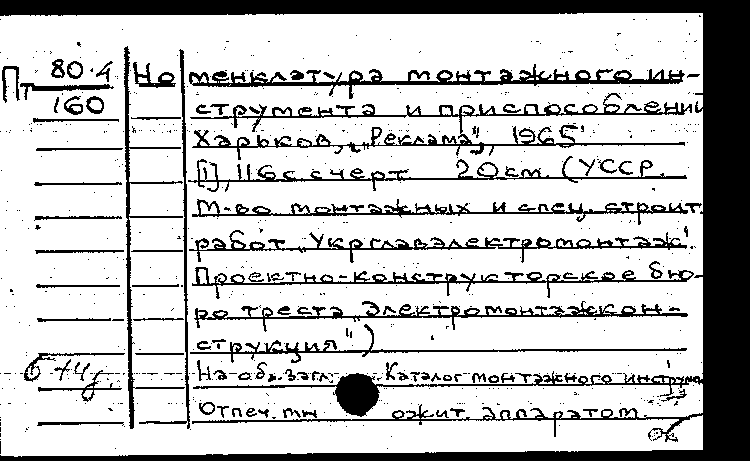 Пт 80.4 Номенклатура монтажного ин-
160 струмента и приспособлений
Харьков, „Реклама", 1965.
[1], 116 с с черт 20 см. (УССР.
М-во монтажных и спец. строит.
работ „Укрглавэлектромонтаж".
Проектно-конструкторское бю-
ро треста „Электромонтажкон-
струкция")
На обл. загл.: Каталог монтажного инструме
Отпеч. мн ожит. аппаратом.